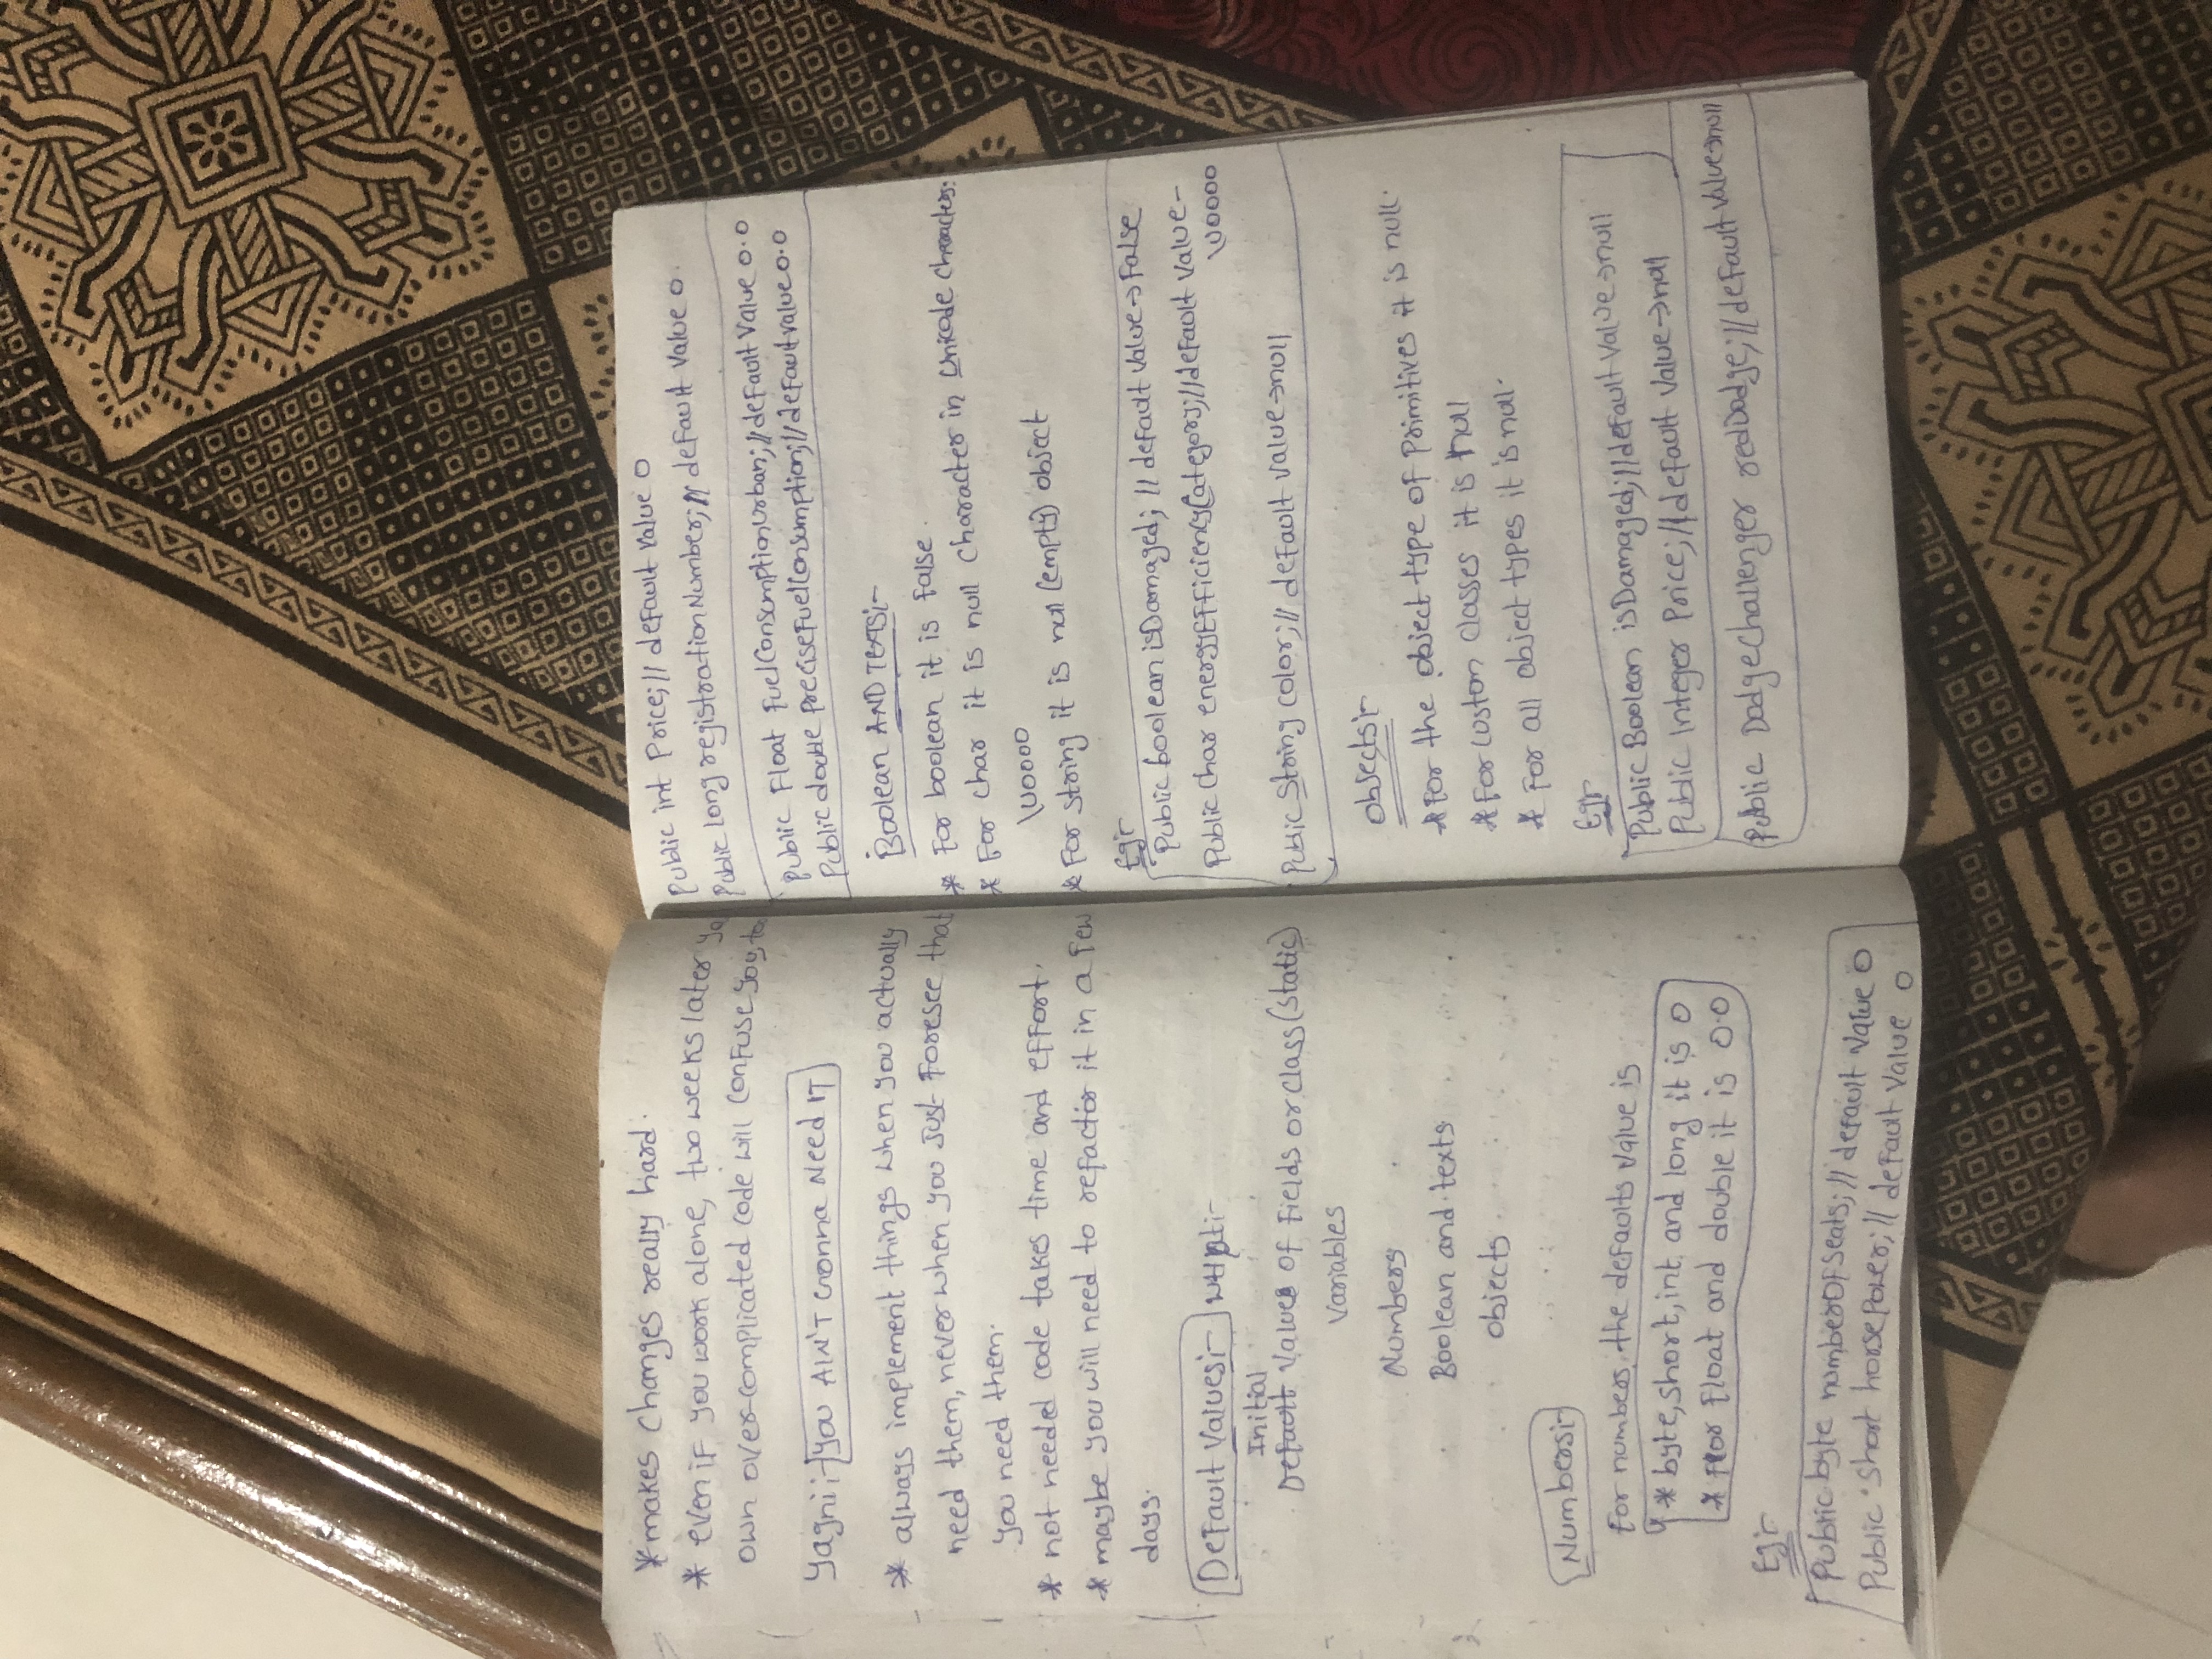 *makes changes really hard.
* even if you work alone, two weeks later yo
own over-complicated code will confuse you, to
Yagni:- You AIN'T Gonna Need IT
* always implement things when you actually
need them, never when you Just Foresee that
you need them.
* not needed code takes time and effort.
* maybe you will need to refactor it in a few
days.
Default Values:- WHAT:-
Initial
Default Values of Fields or class (static)
Variables
Numbers
Boolean and texts
objects
Numbers:-
For numbers, the defaults value is
* byte, short, int, and long it is 0
* for float and double it is 0.0
Eg:-
Public byte numberOfSeats; // default value 0
Public short horsePower; // default value 0
Public int Price; // default value 0
Public long registrationNumber; // default value 0.
Public Float FuelConsumptionUrban; // default value 0.0
Public double PreciseFuelConsumption; // default value 0.0
Boolean AND TEXTS:-
* For boolean it is False.
* For char it is null character in Unicode characters:
\U0000
* For string it is null (empty) object
Eg:-
Public boolean isDamaged; // default value → False
Public Char energyEfficiencyCategory; // default value -
\U0000
Public String color; // default value → null
Objects:-
* For the object type of Primitives it is null.
* For custom classes it is null
* For all object types it is null.
Eg:-
Public Boolean isDamaged; // default value → null
Public Integer Price; // default value → null
Public DodgeChallenger redDodge; // default value → null